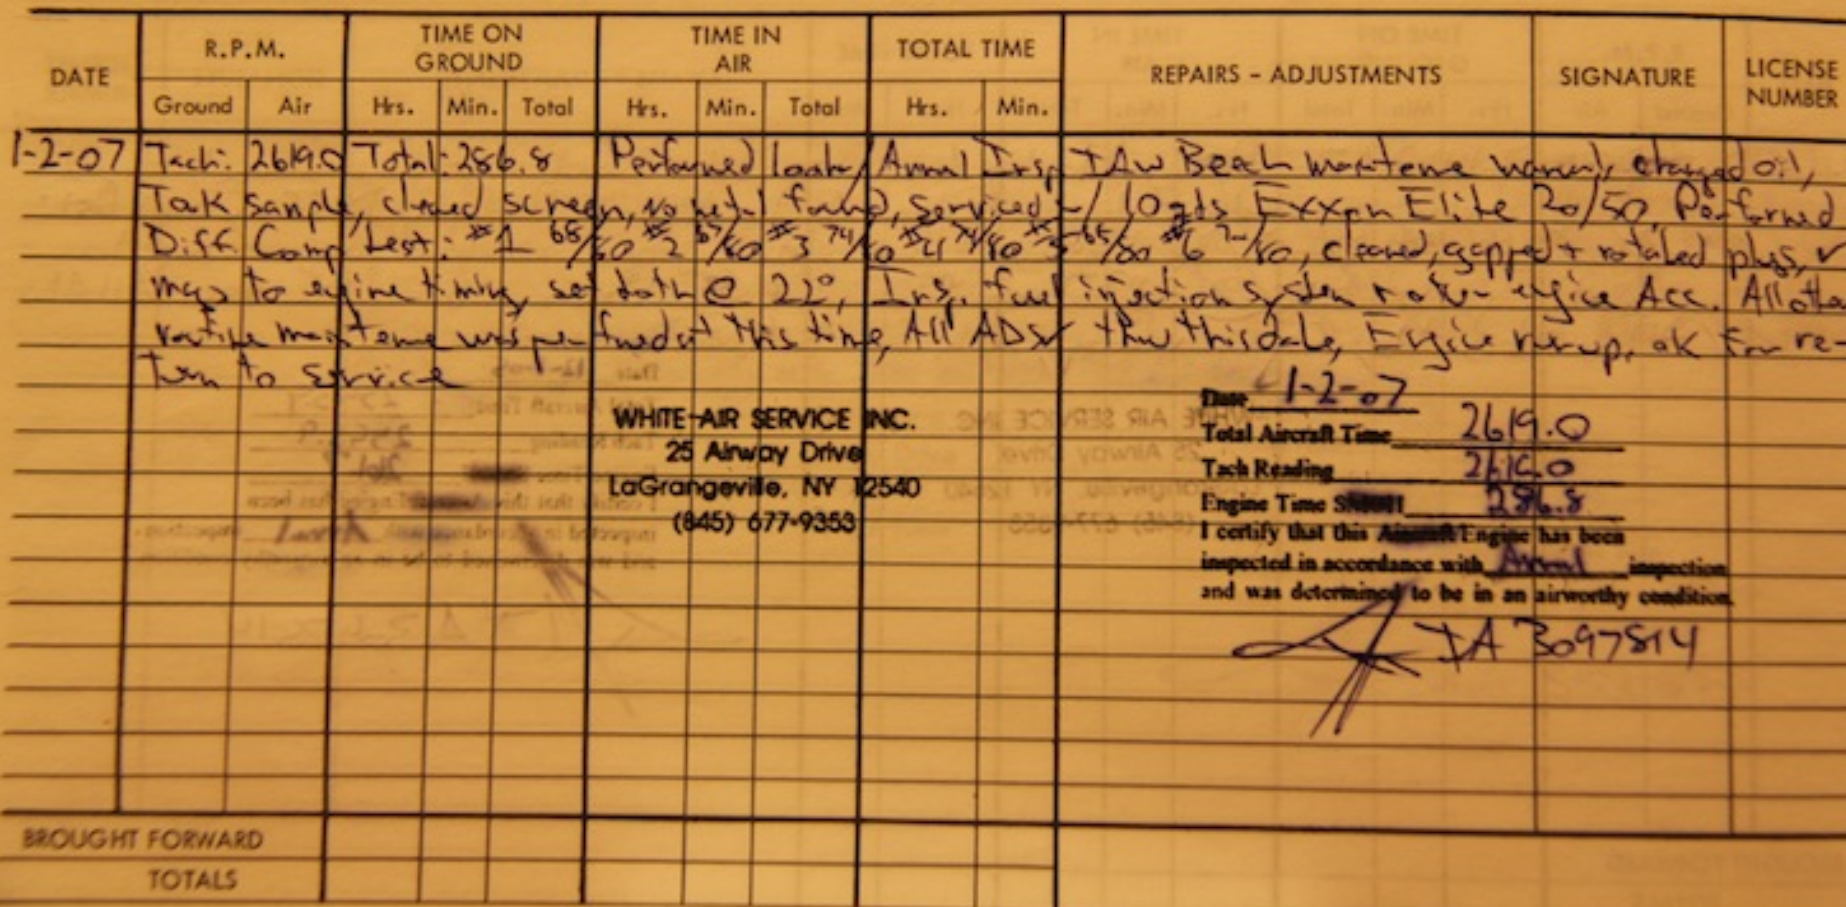 DATE R.P.M. TIME ON GROUND TIME IN AIR TOTAL TIME REPAIRS - ADJUSTMENTS SIGNATURE LICENSE NUMBER
Ground Air Hrs. Min. Total Hrs. Min. Total Hrs. Min.
1-2-07 Tach: 2619.0 Total: 286.8 Performed Annual Insp IAW Beech changed oil,
Took sample, cleaned screen, no metal found, serviced w/ 10 qts Exxon Elite 20/50, Performed
Diff. Comp test: #1 68/80 #2 /80 #3 74/80 #4 74/80 #5 65/80 #6 /80, cleaned, gapped + rotated plugs, ✓
mags to engine timing, set both @ 22°, Ins. fuel injection system engine Acc. All other
routine was at this time, All ADs ✓ thru this date, Engine runup, ok for re-
turn to service
WHITE AIR SERVICE INC.
25 Airway Drive
LaGrangeville, NY 12540
(845) 677-9353
Date 1-2-07
Total Aircraft Time 2619.0
Tach Reading 2619.0
Engine Time 286.8
I certify that this Aircraft/Engine has been
inspected in accordance with Annual inspection
and was determined to be in an airworthy condition.
IA 3097814
BROUGHT FORWARD
TOTALS